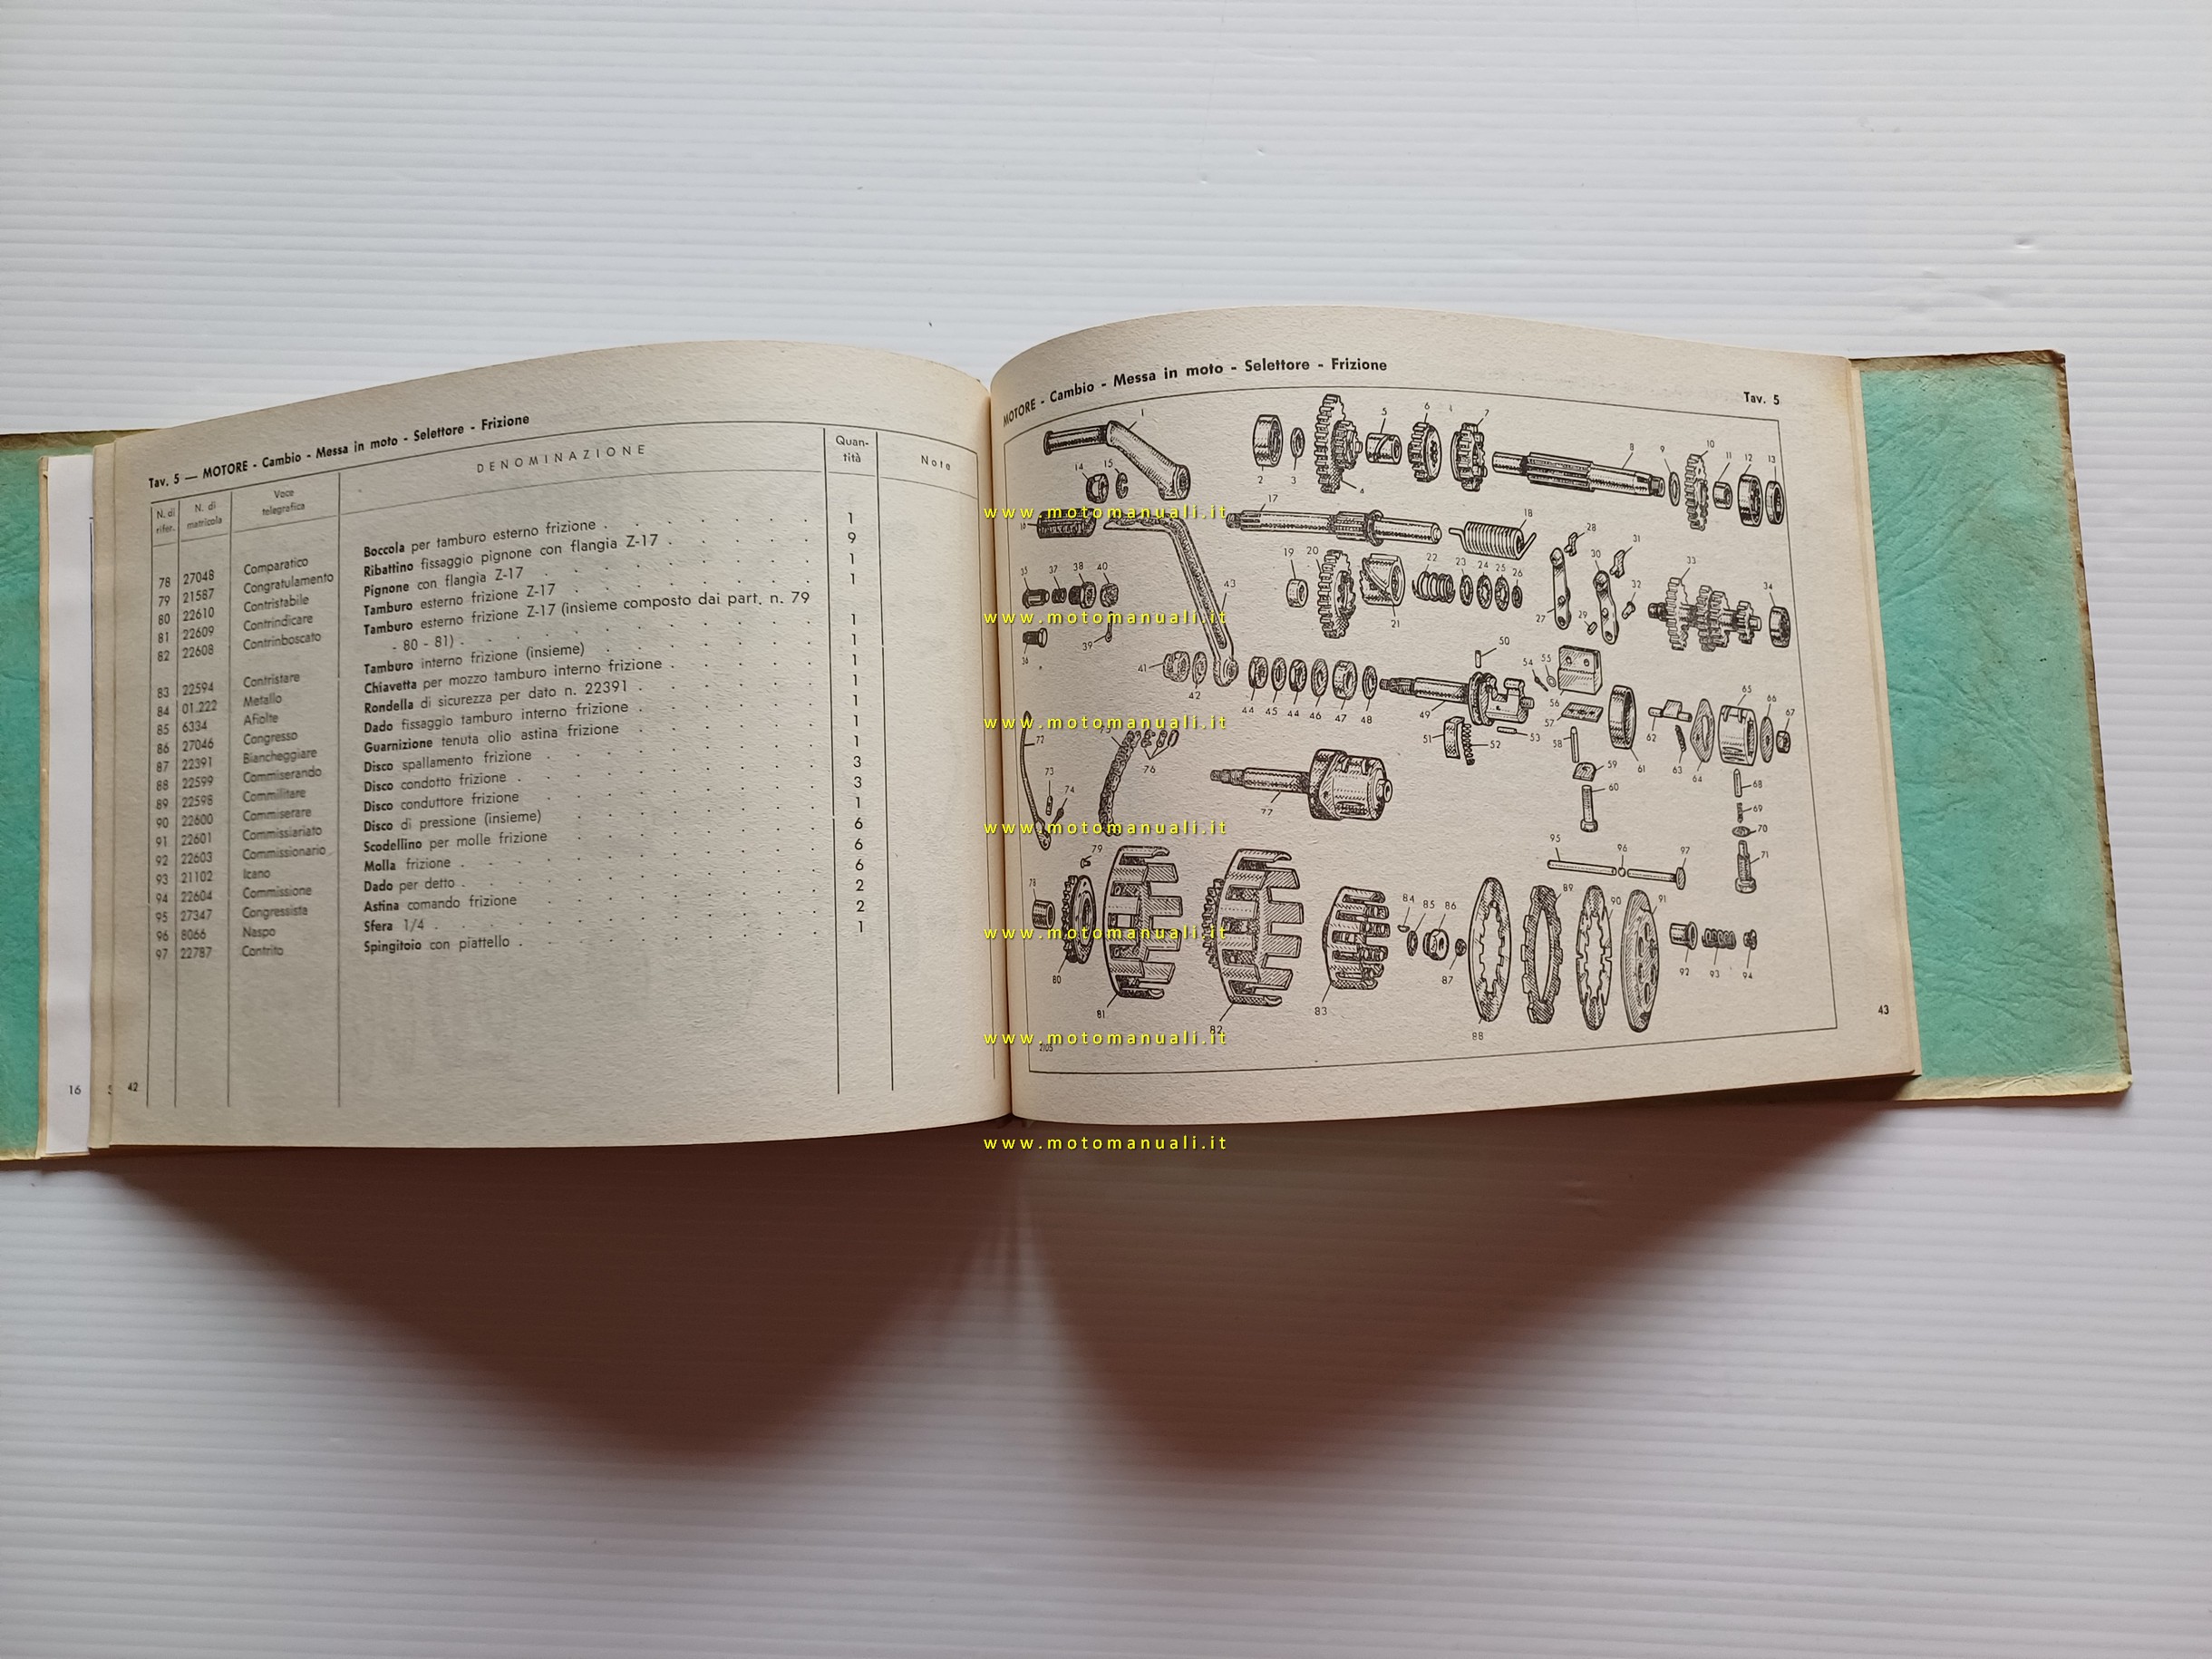 Tav. 5 — MOTORE - Cambio - Messa in moto - Selettore - Frizione
N. di rifer. N. di matricola Voce telegrafica DENOMINAZIONE Quantità Note
78 27048 Comparatico Boccola per tamburo esterno frizione . 1
79 21587 Congratulamento Ribattino fissaggio pignone con flangia Z-17 . 9
80 22610 Contristabile Pignone con flangia Z-17 . 1
81 22609 Contrindicare Tamburo esterno frizione Z-17 . 1
82 22608 Contrinboscato Tamburo esterno frizione Z-17 (insieme composto dai part. n. 79
- 80 - 81) . 1
83 22594 Contristare Tamburo interno frizione (insieme) . 1
84 01.222 Metallo Chiavetta per mozzo tamburo interno frizione . 1
85 6334 Afiolte Rondella di sicurezza per dato n. 22391 . 1
86 27046 Congresso Dado fissaggio tamburo interno frizione . 1
87 22391 Biancheggiare Guarnizione tenuta olio astina frizione 1
88 22599 Commiserando Disco spallamento frizione . 1
89 22598 Commilitare Disco condotto frizione . 3
90 22600 Commiserare Disco conduttore frizione 3
91 22601 Commissiariato Disco di pressione (insieme) . 1
92 22603 Commissionario Scodellino per molle frizione 6
93 21102 Icano Molla frizione . 6
94 22604 Commissione Dado per detto . 6
95 27347 Congressista Astina comando frizione 2
96 8066 Naspo Sfera 1/4 . 2
97 22787 Contrito Spingitoio con piattello . 1
16
42
MOTORE - Cambio - Messa in moto - Selettore - Frizione
Tav. 5
1 2 3 4 5 6 7 8 9 10 11 12 13
14 15 17 18
19 20 21 22 23 24 25 26 27 28 29 30 31 32 33 34
35 36 37 38 39 40 43
41 42 44 45 44 46 47 48 49 50 51 52 53 54 55 56 57 58 59 60 61 62 63 64 65 66 67
68 69 70 71
72 73 74 76 77
78 79 80 81 82 83 84 85 86 87 88 89 90 91 92 93 94
95 96 97
2105
43
www.motomanuali.it
www.motomanuali.it
www.motomanuali.it
www.motomanuali.it
www.motomanuali.it
www.motomanuali.it
www.motomanuali.it